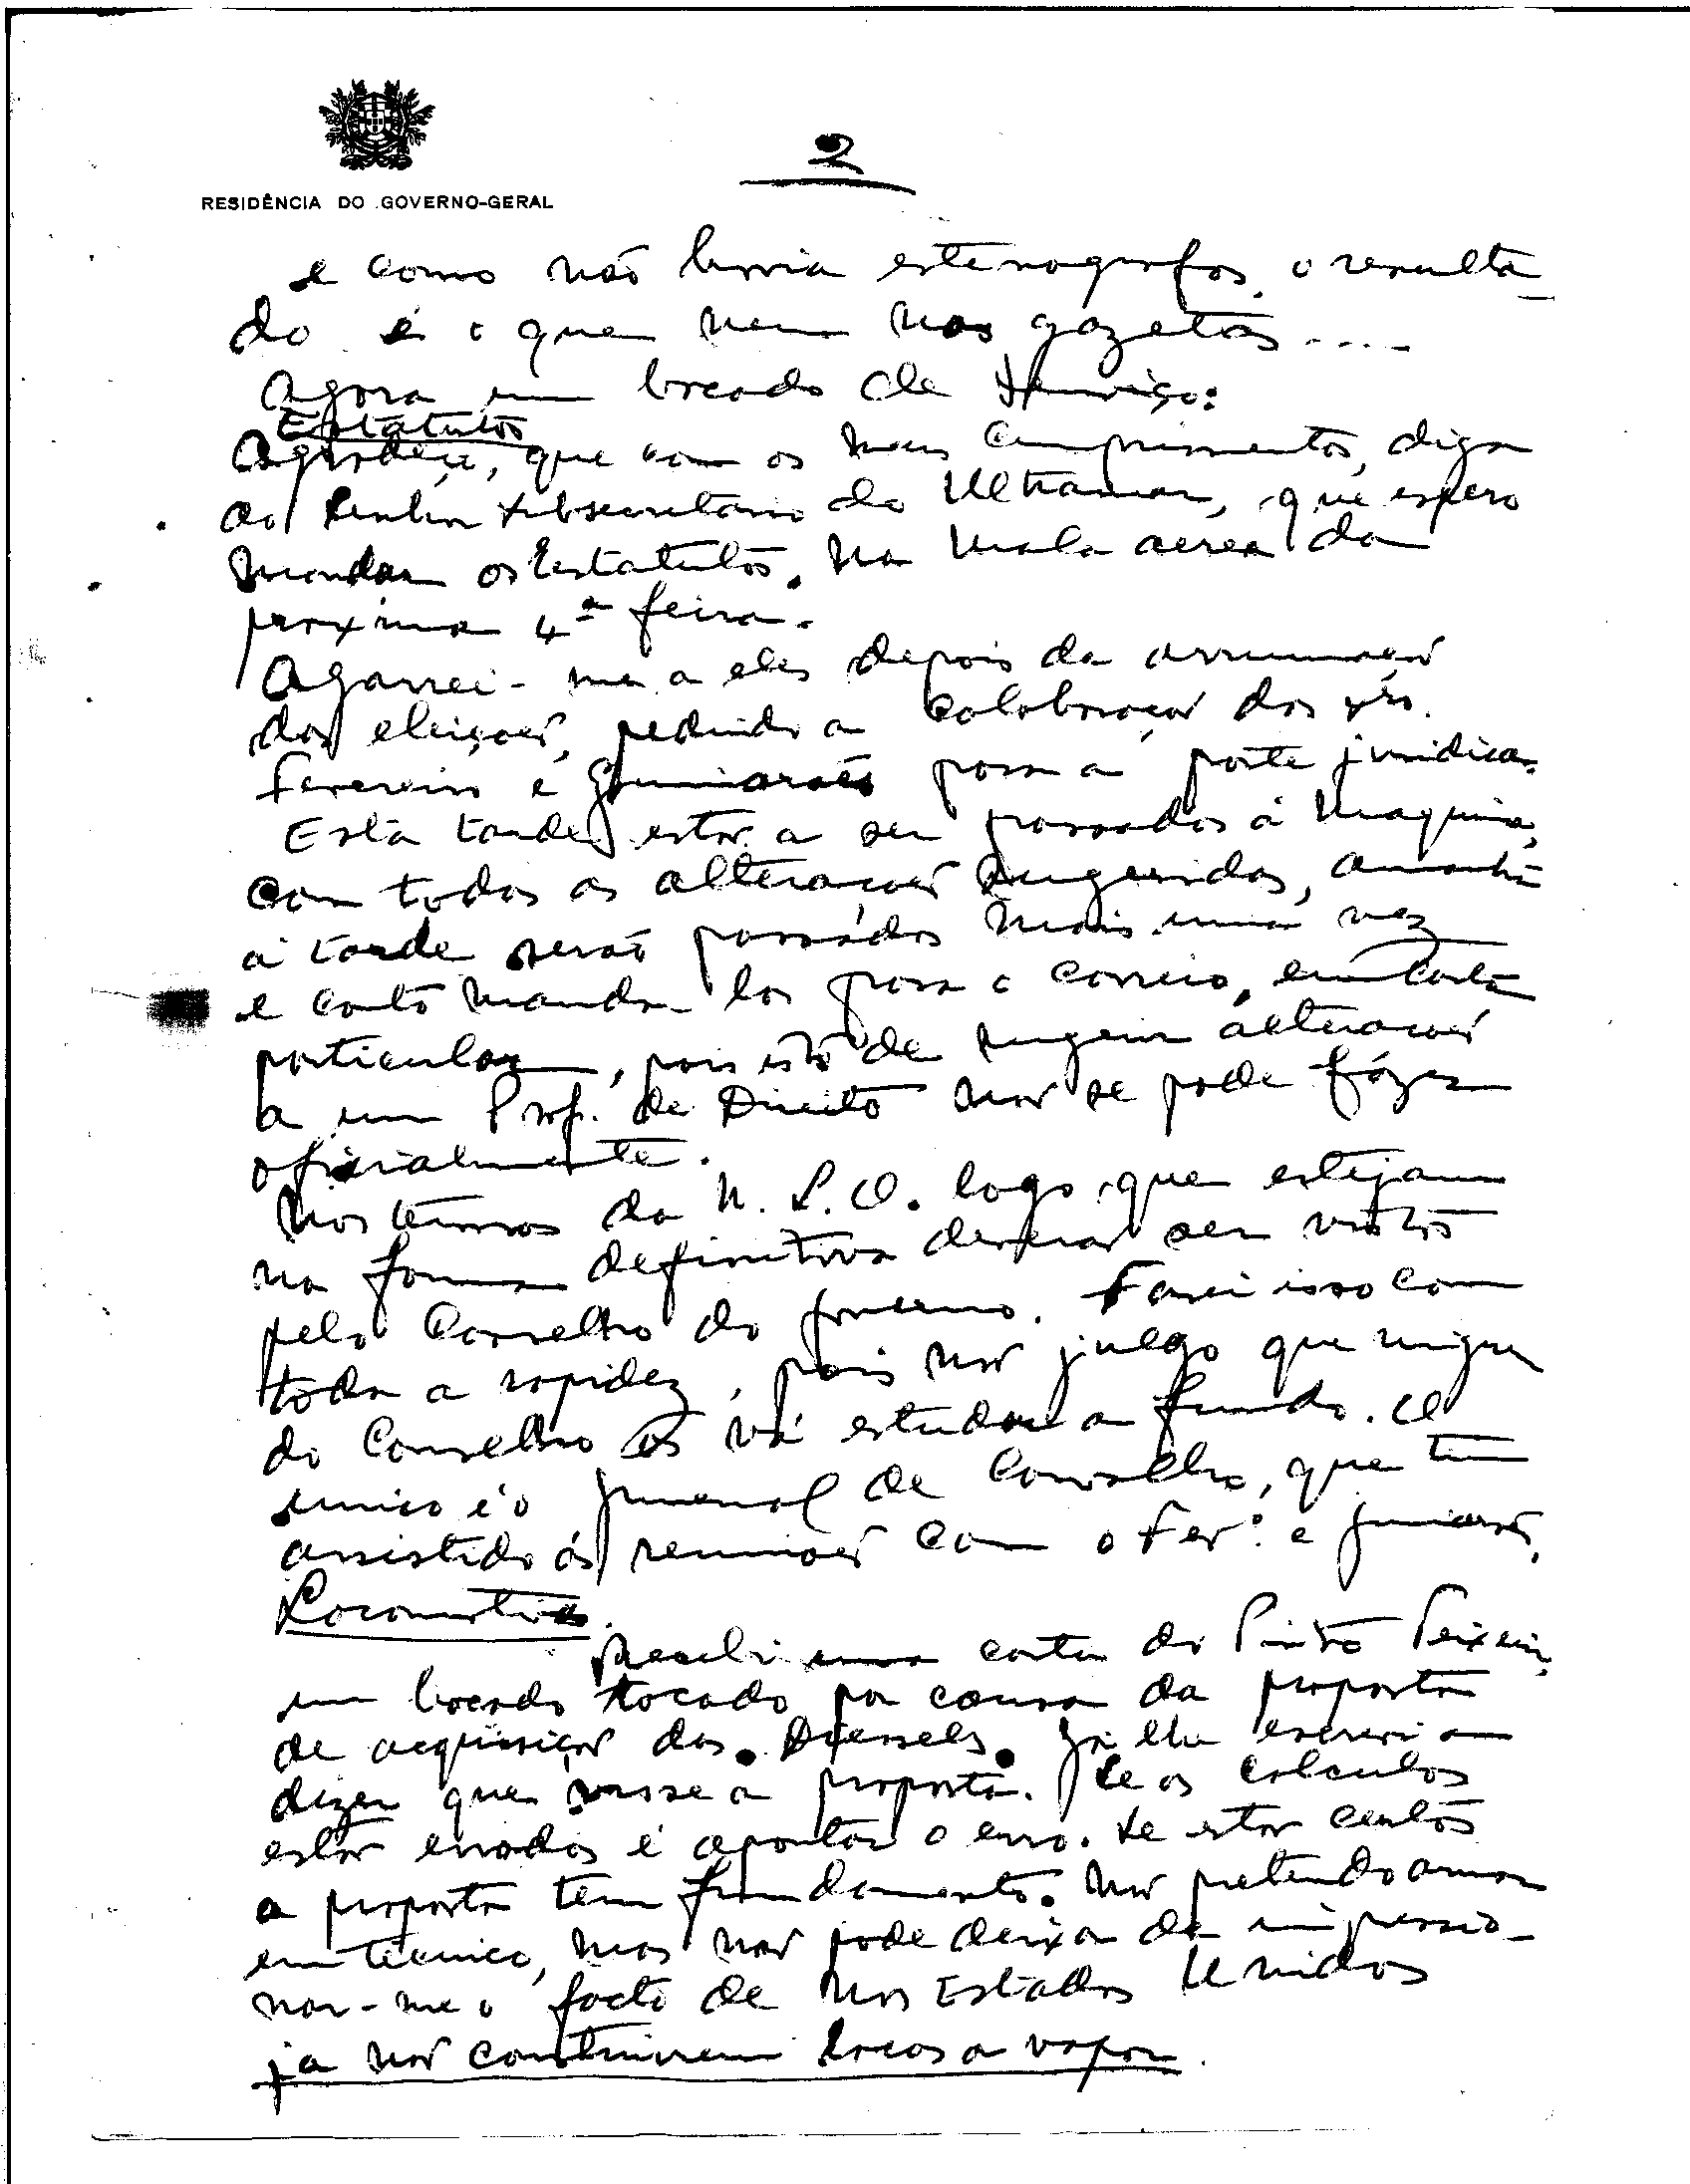 RESIDÊNCIA DO GOVERNO-GERAL
2
e como não havia estenografos, o resulta-
do é o que vem nas gazetas....
Agora um bocado de serviço:
Estatutos
Agradeço, que com os meus cumprimentos, diga
ao Senhor Subsecretario do Ultramar, que espero
mandar os Estatutos, na mala aerea da
proxima 4ª feira.
Agarrei-me a eles depois da arrumação
das eleições, pedindo a colaboração dos srs.
Fevereiro e Guimarães para a parte juridica.
Esta tarde estão a ser passados á maquina,
com todas as alterações sugeridas, amanhã
á tarde serão passados mais uma vez
e conto manda-los para o correio, em carta
particular, pois isto de sugerir alterações
a um Prof. de Direito não se pode fazer
oficialmente.
Nos termos da N. L. O. logo que estejam
na forma definitiva deverão ser vistos
pelo Conselho do Governo. Farei isso com
toda a rapidez, pois não julgo que ninguem
do Conselho os vá estudar a fundo. O
unico é o Juvenal de Carvalho, que tem
assistido ás reuniões com o Fevº. e Guimarães.
Locomotivas.
Recebi uma carta do Pinto Teixeira,
um bocado tocado por causa da proposta
de acquisição das Diesels. Já lhe escrevi a
dizer que visse a proposta. Se os calculos
estão errados é apontar o erro. Se estão certos
a proposta tem fundamento. Não pretendo armar
em tecnico, mas não pode deixar de impressio-
nar-me o facto de nos Estados Unidos
já não construirem locos a vapor.